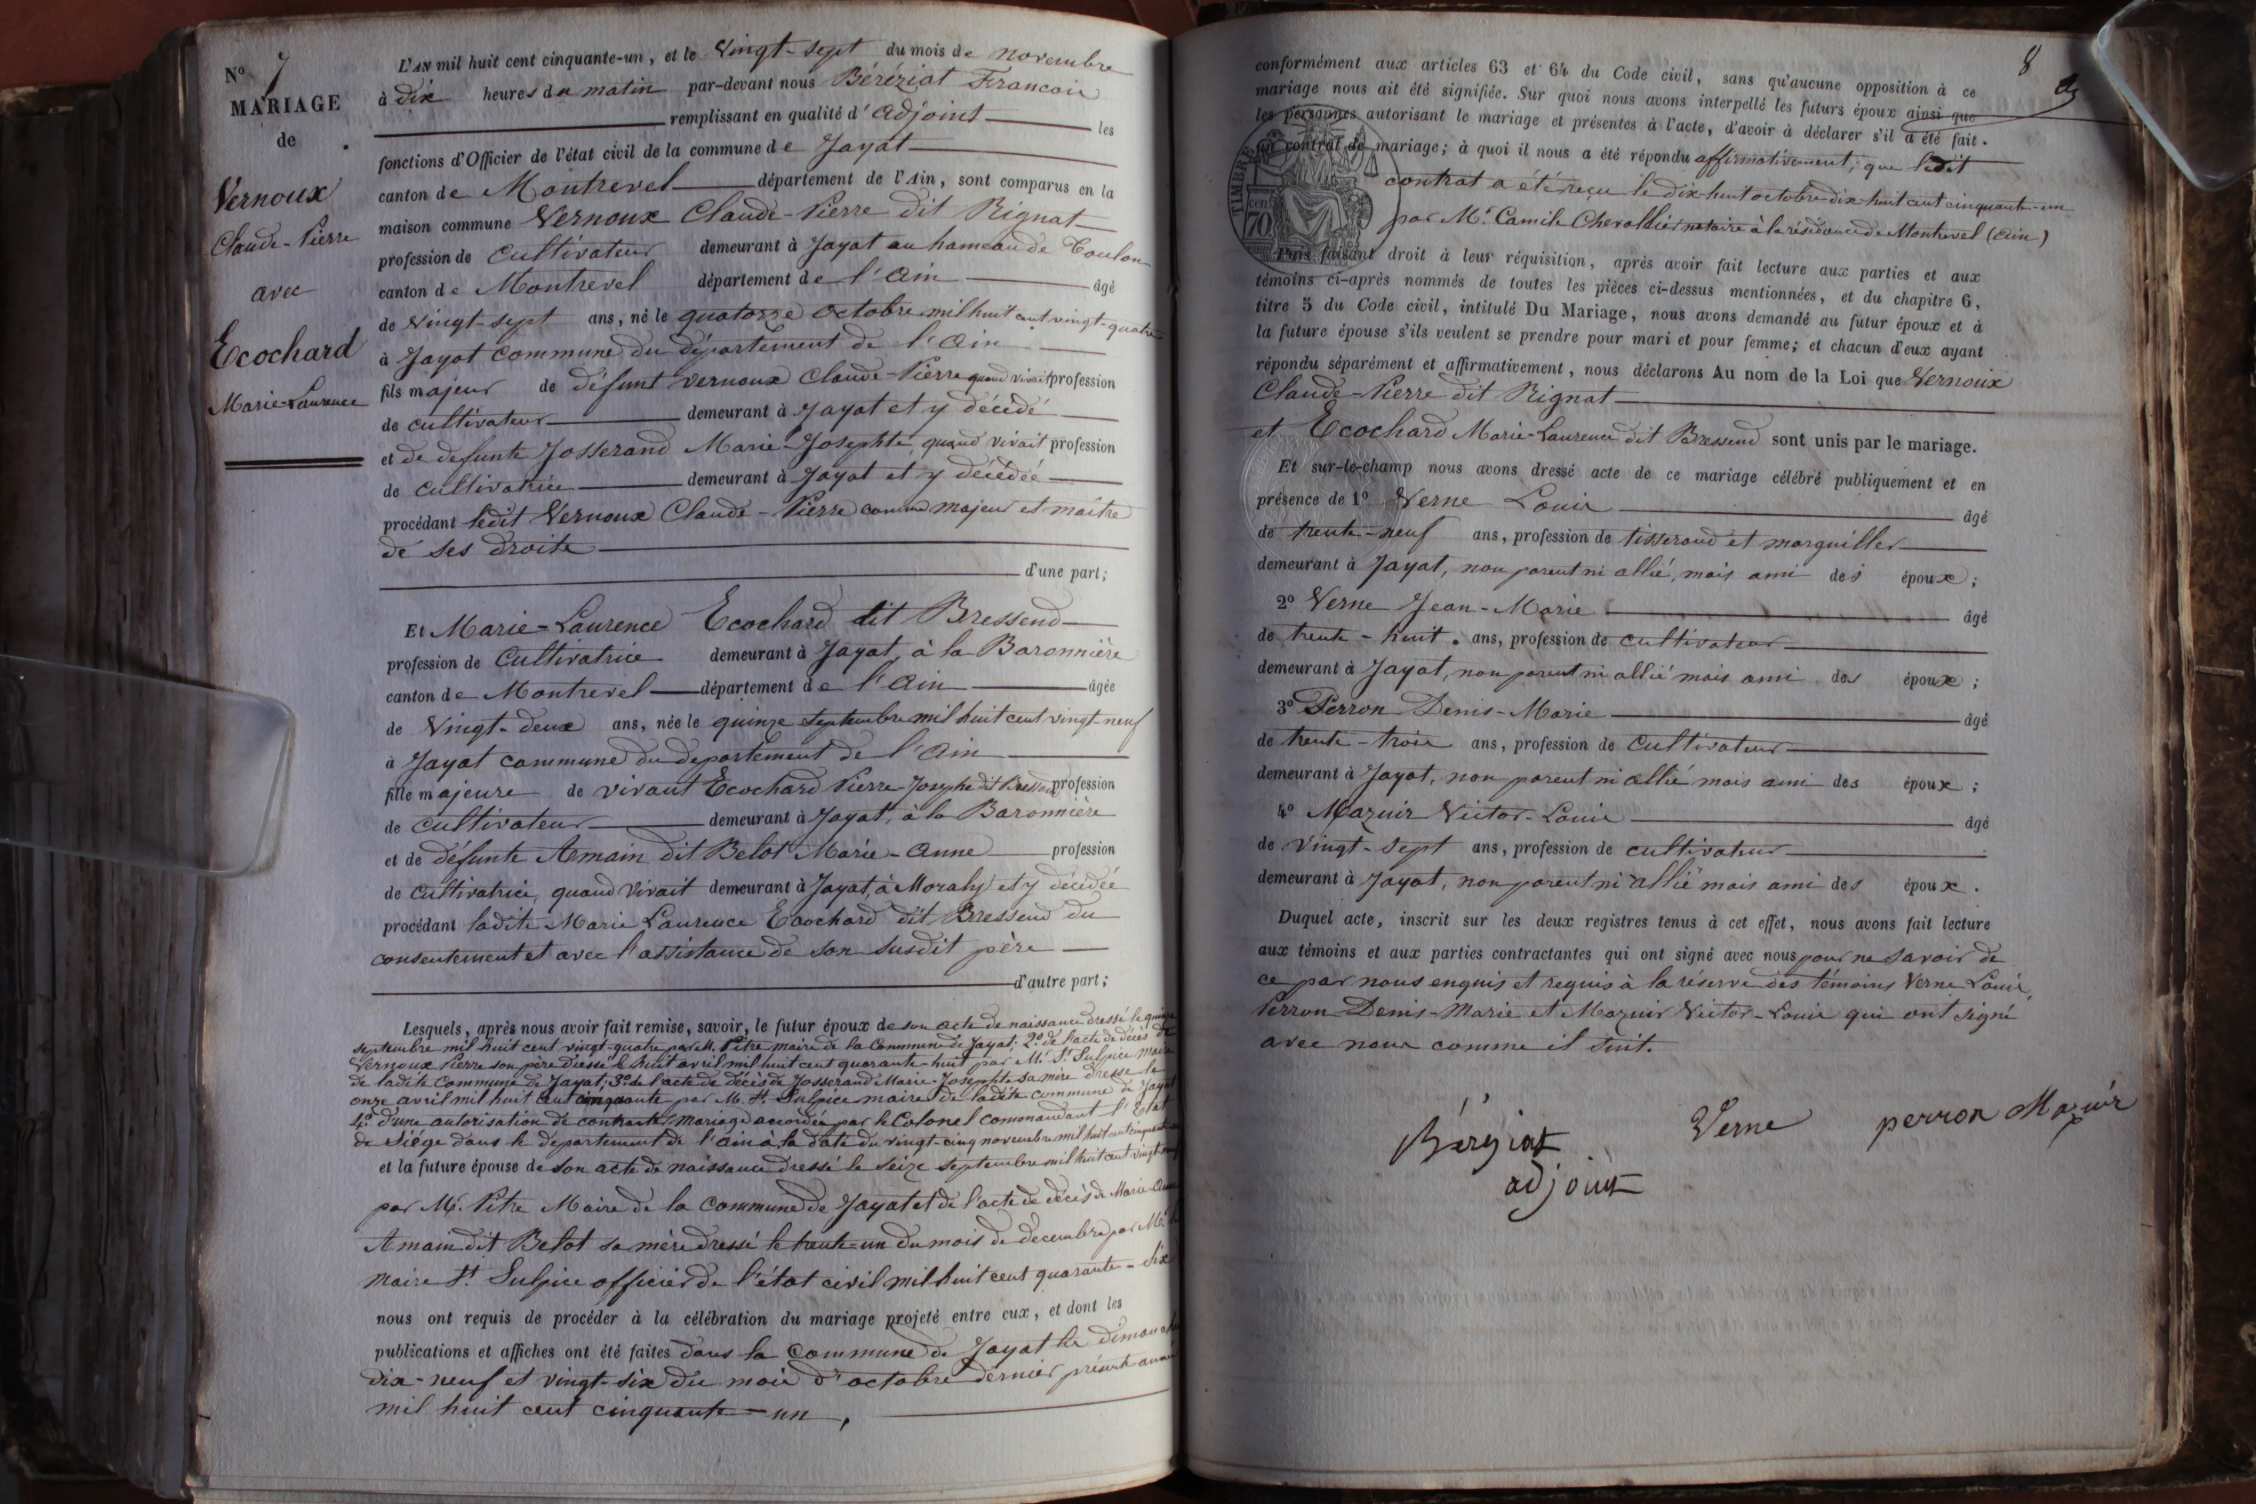 N° 7
MARIAGE
de
Vernoux
Claude-Pierre
avec
Ecochard
Marie-Laurence
L'AN mil huit cent cinquante-un, et le Vingt-sept du mois de novembre
à dix heures du matin par-devant nous Béréziat Francois
remplissant en qualité d'adjoint les
fonctions d'Officier de l'état civil de la commune de Jayat
canton de Montrevel département de l'Ain, sont comparus en la
maison commune Vernoux Claude-Pierre dit Rignat
profession de cultivateur demeurant à Jayat au hameau de Coulon
canton de Montrevel département de l'ain âgé
de Vingt-sept ans, né le quatorze octobre mil huit cent vingt-quatre
à Jayat commune du département de l'ain
fils majeur de défunt vernoux Claude-Pierre quand vivait profession
de cultivateur demeurant à Jayat et y décédé
et de defunte Josserand Marie-Josephte, quand vivait profession
de cultivatrice demeurant à Jayat et y décédée
procédant ledit Vernoux Claude-Pierre comme majeur et maître
de ses droits
d'une part;
Et Marie-Laurence Ecochard dit Bressend
profession de Cultivatrice demeurant à Jayat, à la Baronnière
canton de Montrevel département de l'ain âgée
de Vingt-deux ans, née le quinze septembre mil huit cent vingt-neuf
à Jayat commune du departement de l'ain
fille majeure de vivant Ecochard Pierre Josephe dit Bressend profession
de cultivateur demeurant à Jayat, à la Baronnière
et de défunte Amain dit Belot Marie-anne profession
de cultivatrice, quand vivait demeurant à Jayat à Moraly et y décédée
procédant ladite Marie Laurence Ecochard dit Bressend du
consentement et avec l'assistance de son susdit père
d'autre part;
Lesquels, après nous avoir fait remise, savoir, le futur époux de son acte de naissance dressé le quinze
septembre mil huit cent vingt-quatre par M. Pitre maire de la Commune de Jayat; 2° de l'acte de décès de
Vernoux Pierre son père dressé le huit avril mil huit cent quarante-huit par Mr. St. Sulpice maire
de ladite Commune de Jayat; 3° de l'acte de décès de Josserand Marie-Josephte sa mère dressé le
onze avril mil huit cent cinquante par M. St. Sulpice maire de ladite commune de Jayat
4° d'une autorisation de contracter mariage accordée par le Colonel commandant l'Etat
de Siége dans le departement de l'ain à la date du vingt-cinq novembre mil huit cent cinquante-un
et la future épouse de son acte de naissance dressé le seize septembre mil huit cent vingt-neuf
par Mr. Pitre Maire de la Commune de Jayat et de l'acte de décès de Marie-Anne
Amain dit Belot sa mère dressé le trente-un du mois de décembre par Mr. le
maire St. Sulpice officier de l'état civil mil huit cent quarante-six
nous ont requis de procéder à la célébration du mariage projeté entre eux, et dont les
publications et affiches ont été faites dans la Commune de Jayat les dimanches
dix-neuf et vingt-six du mois d'octobre dernier présente année
mil huit cent cinquante-un,
8
conformément aux articles 63 et 64 du Code civil, sans qu'aucune opposition à ce
mariage nous ait été signifiée. Sur quoi nous avons interpellé les futurs époux ainsi que
les personnes autorisant le mariage et présentes à l'acte, d'avoir à déclarer s'il a été fait
un contrat de mariage; à quoi il nous a été répondu affirmativement; que ledit
contrat a été reçu le dix-huit octobre dix-huit cent cinquante-un
par Mr. Camile Chevallier notaire à la résidence de Montrevel (Ain)
TIMBRE
70 cen
Puis faisant droit à leur réquisition, après avoir fait lecture aux parties et aux
témoins ci-après nommés de toutes les pièces ci-dessus mentionnées, et du chapitre 6,
titre 5 du Code civil, intitulé Du Mariage, nous avons demandé au futur époux et à
la future épouse s'ils veulent se prendre pour mari et pour femme; et chacun d'eux ayant
répondu séparément et affirmativement, nous déclarons Au nom de la Loi que Vernoux
Claude-Pierre dit Rignat
et Ecochard Marie-Laurence dit Bressend sont unis par le mariage.
Et sur-le-champ nous avons dressé acte de ce mariage célébré publiquement et en
présence de 1° Verne Louis âgé
de trente-neuf ans, profession de tisserand et marguiller
demeurant à Jayat, non parent ni allié, mais ami des époux;
2° Verne Jean-Marie âgé
de trente-huit ans, profession de cultivateur
demeurant à Jayat, non parent ni allié mais ami des époux;
3° Perron Denis-Marie âgé
de trente-trois ans, profession de cultivateur
demeurant à Jayat, non parent ni allié mais ami des époux;
4° Mazuir Victor-Louis âgé
de vingt-sept ans, profession de cultivateur
demeurant à Jayat, non parent ni allié mais ami des époux.
Duquel acte, inscrit sur les deux registres tenus à cet effet, nous avons fait lecture
aux témoins et aux parties contractantes qui ont signé avec nous pour ne savoir de
ce par nous enquis et requis à la réserve des témoins Verne Louis,
Perron-Denis-Marie et Mazuir Victor-Louis qui ont signé
avec nous comme il suit.
Béréziat Verne perron Mazuir
adjoint